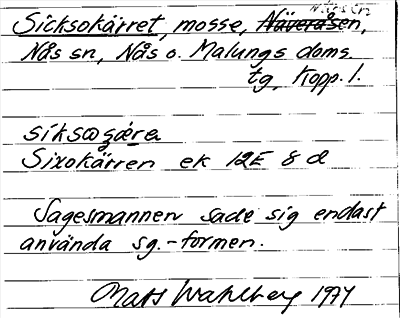 Nås sn
Sicksokärret, mosse, Näveråsen,
Nås sn, Nås o. Malungs doms
tg, Kopp. l.
Sixokärren ek 12E 8 d
Sagesmannen sade sig endast
använda sg.-formen.
Mats Wahlberg 1974